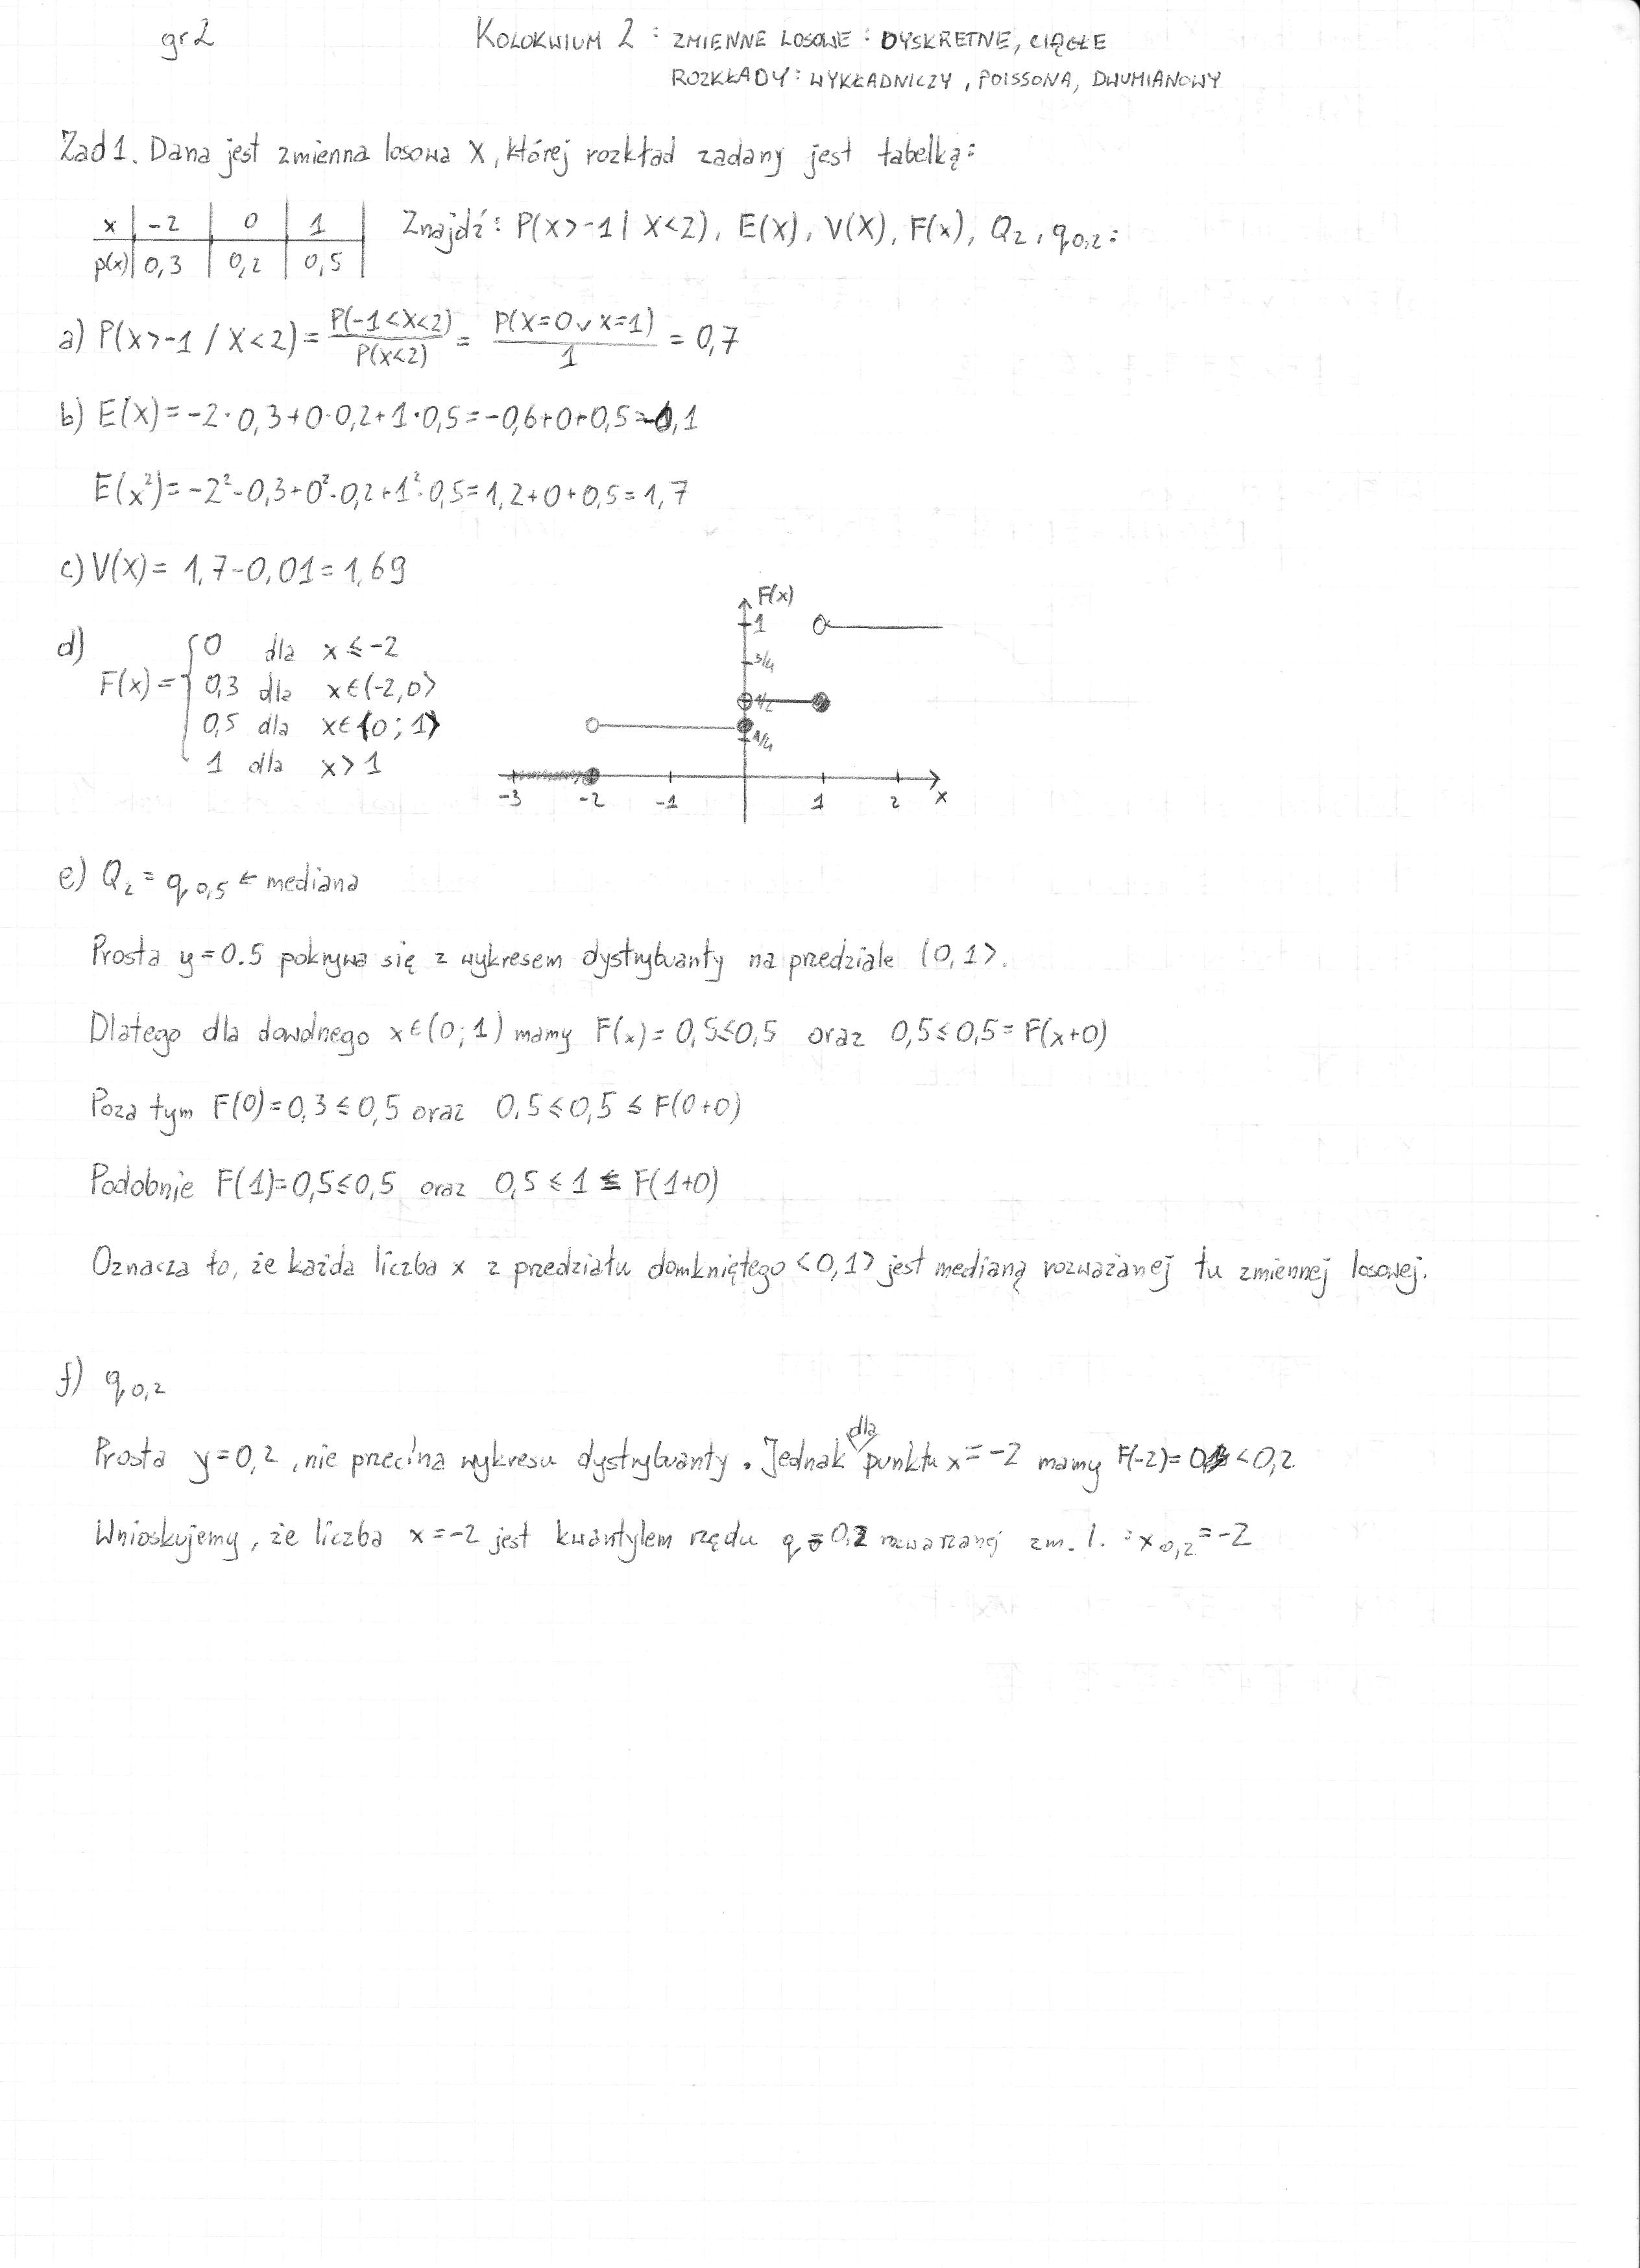 gr2
KOLOKWIUM 2 : ZMIENNE LOSOWE : DYSKRETNE, CIĄGŁE
ROZKŁADY : WYKŁADNICZY, POISSONA, DWUMIANOWY
Zad 1. Dana jest zmienna losowa X, której rozkład zadany jest tabelką:
x | -2 | 0 | 1
p(x) | 0,3 | 0,2 | 0,5
Znajdź: P(x>-1 | X<2), E(x), V(X), F(x), Q₂, q₀,₂:
a) P(x>-1 / X<2) = P(-1<X<2)/P(X<2) = P(X=0 ∨ X=1)/1 = 0,7
b) E(X) = -2·0,3+0·0,2+1·0,5 = -0,6+0+0,5 = -0,1
E(x²) = -2²·0,3+0²·0,2+1²·0,5 = 1,2+0+0,5 = 1,7
c) V(X) = 1,7-0,01 = 1,69
d)
F(x) = { 0 dla x ≤ -2
0,3 dla x∈(-2,0>
0,5 dla x∈(0;1>
1 dla x>1
F(x)
1
3/4
1/2
1/4
-3 -2 -1 1 2 x
e) Q₂ = q₀,₅ ← mediana
Prosta y=0.5 pokrywa się z wykresem dystrybuanty na przedziale (0,1>.
Dlatego dla dowolnego x∈(0;1) mamy F(x)=0,5≤0,5 oraz 0,5≤0,5=F(x+0)
Poza tym F(0)=0,3≤0,5 oraz 0,5≤0,5≤F(0+0)
Podobnie F(1)=0,5≤0,5 oraz 0,5≤1≤F(1+0)
Oznacza to, że każda liczba x z przedziału domkniętego <0,1> jest medianą rozważanej tu zmiennej losowej.
f) q₀,₂
Prosta y=0,2, nie przecina wykresu dystrybuanty. Jednak dla punktu x=-2 mamy F(-2)= <0,2
Wnioskujemy, że liczba x=-2 jest kwantylem rzędu q=0,2 rozwarzanej zm. l. : x₀,₂=-2